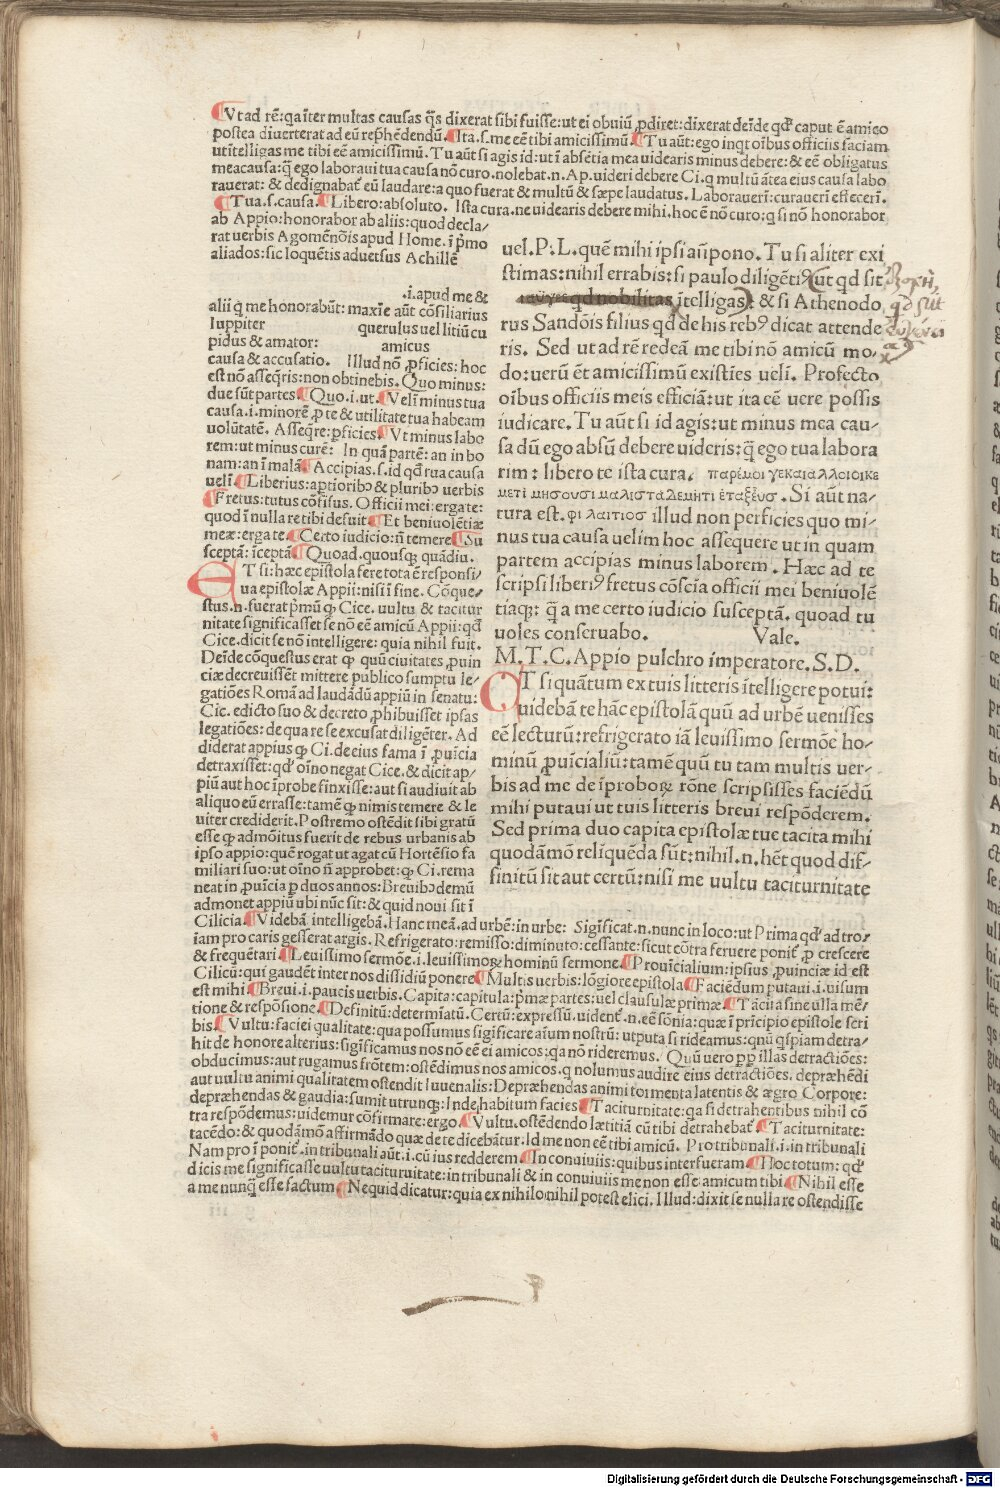 Vt ad rē: qa īter multas causas q̄s dixerat sibi fuisse: ut ei obuiū ꝓdiret: dixerat deīde qđ caput ē amico
postea diuerterat ad eū rep̄hēdendū. Ita .s. me eē tibi amicissimū. Tu aūt: ego inqt oībus officiis faciam
ut itelligas me tibi eē amicissimū. Tu aūt si agis id: ut ī absētia mea uidearis minus debere: & eē obligatus
mea causa: q̄ ego laboraui tua causa nō curo. nolebat .n. Ap. uideri debere Ci. q multū ātea eius causa labo
rauerat: & dedignabat̄ eū laudare: a quo fuerat & multū & sæpe laudatus. Laborauerī: curauerī effecerī.
Tua .s. causa. Libero: absoluto. Ista cura. ne uidearis debere mihi. hoc ē nō curo: q si nō honorabor
ab Appio: honorabor ab aliis: quod decla/
rat uerbis Agomēnōis apud Home. ī p̄mo
aliados: sic loquētis aduersus Achillē
.i. apud me &
alii q̄ me honorabūt: maxīe aūt cōsiliarius
Iuppiter querulus uel litiū cu
pidus & amator: amicus
causa & accusatio. Illud nō ꝓficies: hoc
est nō asseq̄ris: non obtinebis. Quo minus:
due sūt partes. Quo .i. ut. Velī minus tua
causa .i. minorē ꝓ te & utilitate tua habeam
uolūtatē. Asseq̄re: ꝓficies. Vt minus labo
rem: ut minus curē: In quā partē: an in bo
nam: an ī malā. Accipias .s. id qđ rua causa
uelī. Liberius: aptioribꝰ & pluribꝰ uerbis
Fretus: tutus cōfisus. Officii mei: ergate:
quod ī nulla re tibi defuit. Et beniuolētiæ
meæ: ergate. Certo iudicio: n̄ temere. Su
sceptā: īceptā. Quoad. quousq; quādiu.
ET si: hæc epistola fere tota ē responsi/
ua epistolæ Appii: nisi ī fine. Cōque/
stus .n. fuerat p̄mū ꝙ Cice. uultu & tacitur
nitate significasset se nō eē amicū Appii: qđ
Cice. dicit se nō intelligere: quia nihil fuit.
Deīde cōquestus erat ꝙ quū ciuitates ꝓuin
ciæ decreuissēt mittere publico sumptu le/
gatiōes Romā ad laudādū appiū in senatu:
Cic. edicto suo & decreto ꝓhibuisset ipsas
legatiōes: de qua re se excusat diligēter. Ad
diderat appius ꝙ Ci. de eius fama ī ꝓuīcia
detraxisset: qđ oīno negat Cice. & dicit ap/
piū aut hoc īprobe finxisse: aut si audiuit ab
aliquo eū errasse: tamē ꝙ nimis temere & le
uiter crediderit. Postremo ostēdit sibi gratū
esse ꝙ admōitus fuerit de rebus urbanis ab
ipso appio: quē rogat ut agat cū Hortēsio fa
miliari suo: ut oīno n̄ approbet: ꝙ Ci. rema
neat in ꝓuīcia p duos annos: Breuibꝰ demū
admonet appiū ubi nūc sit: & quid noui sit ī
uel. P. L. quē mihi ipsi aūpono. Tu si aliter exi
stimas: nihil errabis: si paulo diligētiꝰ (ut qđ sit
qđ nobilitas ītelligas): & si Athenodo
rus Sandōis filius qđ de his rebꝰ dicat attende
ris. Sed ut ad rē redeā me tibi nō amicū mo/
do: uerū ēt amicissimū existīes uelī. Profecto
oībus officiis meis efficiā: ut ita eē uere possis
iudicare. Tu aūt si id agis: ut minus mea cau/
sa dū ego absū debere uideris: q̄ ego tua labora
rim: libero te ista cura. παρέμοι γεκαιαλλοιοικε
μετι μησουσι μαλιστα δεμητι ετα Σευσ. Si aūt na/
tura est. φιλαιτιοσ illud non perficies quo mi/
nus tua causa uelim hoc assequere ut in quam
partem accipias minus laborem. Hæc ad te
scripsi liberiꝰ fretus cōscīa officii mei beniuolē
tiæq;: q̄ a me certo iudicio susceptā. quoad tu
uoles conseruabo. Vale.
M. T. C. Appio pulchro imperatore. S. D.
ET si quātum ex tuis litteris ītelligere potui:
uidebā te hāc epistolā quū ad urbē uenisses
eē lecturū: refrigerato iā leuissimo sermōe ho/
minū ꝓuīcialiū: tamē quū tu tam multis uer/
bis ad me de īproboꝝ rōne scripsisses faciēdū
mihi putaui ut tuis litteris breui respōderem.
Sed prima duo capita epistolæ tue tacita mihi
quodāmō relīquēda sūt: nihil .n. hēt quod dif/
finitū sit aut certū: nisi me uultu taciturnitate
Cilicia. Videbā intelligebā. Hanc meā. ad urbē: in urbe: Sigificat .n. nunc in loco: ut Prima qđ ad tro/
iam pro caris gesserat argis. Refrigerato: remisso: diminuto: cessante: sicut cōtra feruere ponit̄ ꝓ crescere
& frequētari. Leuissimo sermōe .i. leuissimoꝝ hominū sermone. Prouīcialium: ipsius ꝓuinciæ id est
Cilicū: qui gaudēt inter nos dissidiū ponere. Multis uerbis: lōgiore epistola. Faciēdum putaui .i. uisum
est mihi. Breui .i. paucis uerbis. Capita: capitula: p̄mæ partes: uel clausulæ primæ. Tacita sine ulla mē/
tione & respōsione. Definitū: determīatū. Certū: expressū. uident̄ .n. eē sōnia: quæ ī prīcipio epistole scri
bis. Vultu: faciei qualitate: qua possumus sigificare aīum nostrū: utputa si rideamus: qnū qspiam detra/
hit de honore alterius: sigīficamus nos nō eē ei amicos: qa nō rideremus. Quū uero pp illas detractiōes:
obducimus: aut rugamus frōtem: ostēdimus nos amicos. q nolumus audire eius detractiōes. depræhēdi
aut uultu animi qualitatem ostendit Iuuenalis: Depræhendas animi tormenta latentis & ægro Corpore:
depræhendas & gaudia: sumit utrunq;: Inde habitum facies. Taciturnitate: qa si detrahentibus nihil cō
tra respōdemus: uidemur cōfirmare: ergo. Vultu. ostēdendo lætitiā cū tibi detrahebat̄. Taciturnitate:
tacēdo: & quodāmō affirmādo quæ de te dicebātur. Id me non eē tibi amicū. Pro tribunali .i. in tribunali
Nam pro ī ponit̄. in tribunali aūt .i. cū ius redderem. In conuiuiis: quibus interfueram. Hoc totum: qđ
dicis me significasse uultu taciturnitate: in tribunali & in conuiuiis me non esse amicum tibi. Nihil esse
a me nunq̄ esse factum. Nequid dicatur: quia ex nihilo nihil potest elici. Illud: dixit se nulla re ostendisse
Digitalisierung gefördert durch die Deutsche Forschungsgemeinschaft - DFG